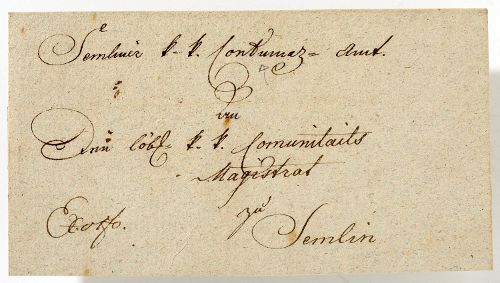 Semliner k. k. Contumaz = Amt.
an
löbl: k. k. Comunitaits
Magistrat
zu
Semlin